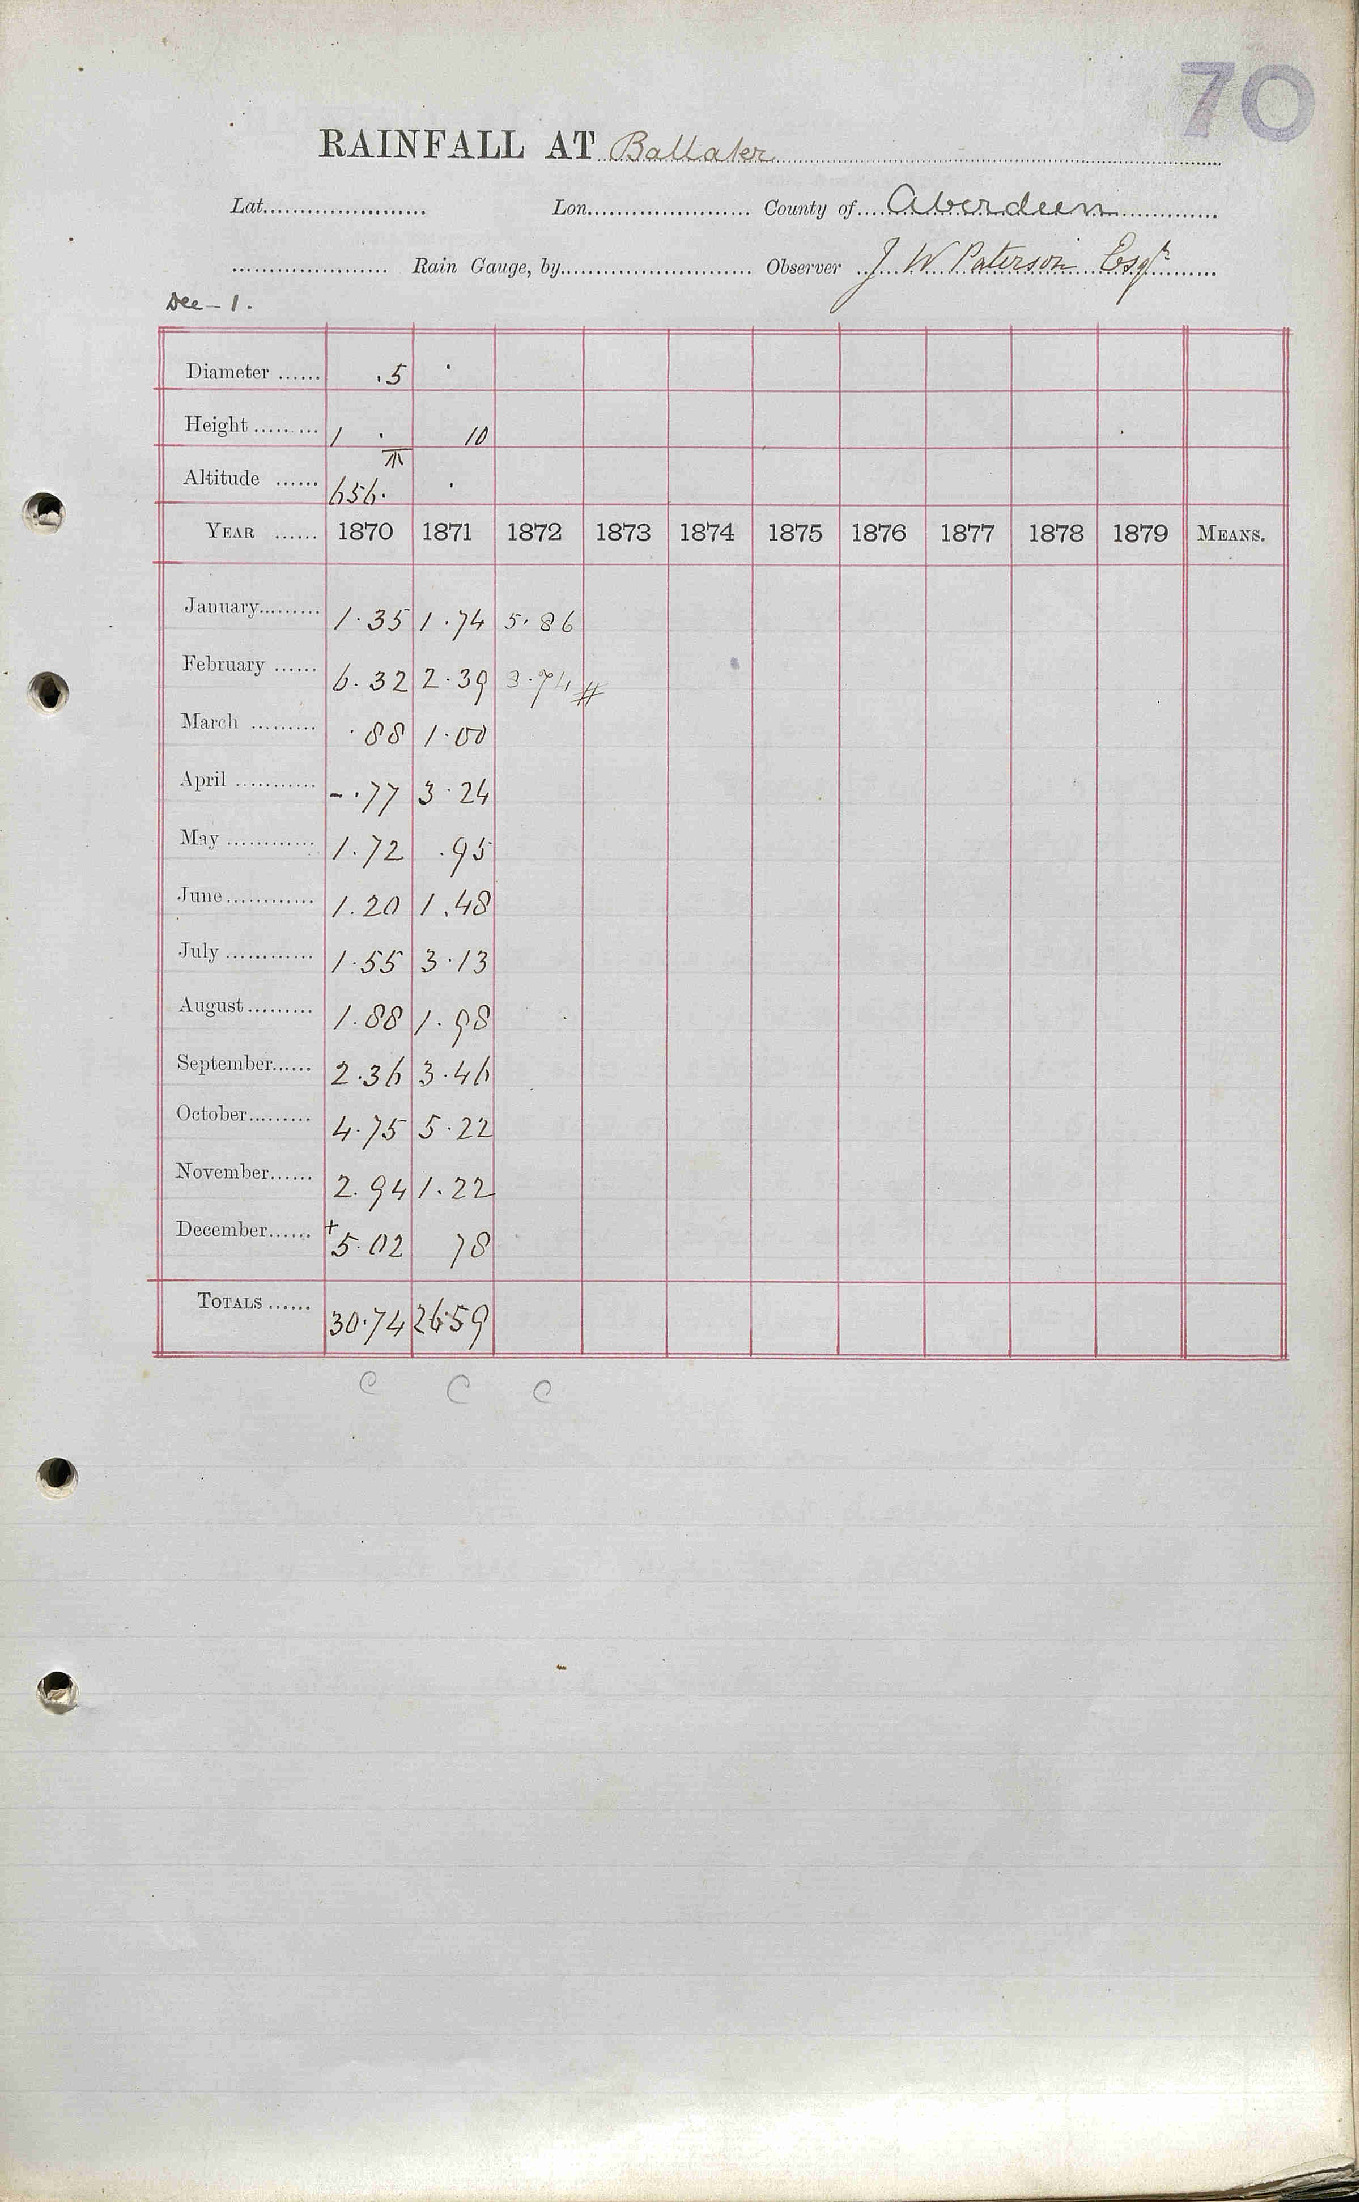 70
RAINFALL AT Ballater
Lat. Lon. County of Aberdeen
Rain Gauge, by Observer J W Paterson Esqr
Dee - 1.
Diameter ...... .5
Height ......... 1 . 10
Altitude ...... 656.
YEAR ...... 1870 1871 1872 1873 1874 1875 1876 1877 1878 1879 MEANS.
January......... 1.35 1.74 5.86
February ...... 6.32 2.39 3.74 #
March ......... .88 1.00
April ........... -.77 3.24
May ............ 1.72 .95
June............ 1.20 1.48
July ............ 1.55 3.13
August......... 1.88 1.98
September...... 2.36 3.46
October......... 4.75 5.22
November...... 2.94 1.22
December...... +5.02 78
TOTALS ...... 30.74 26.59
C C C